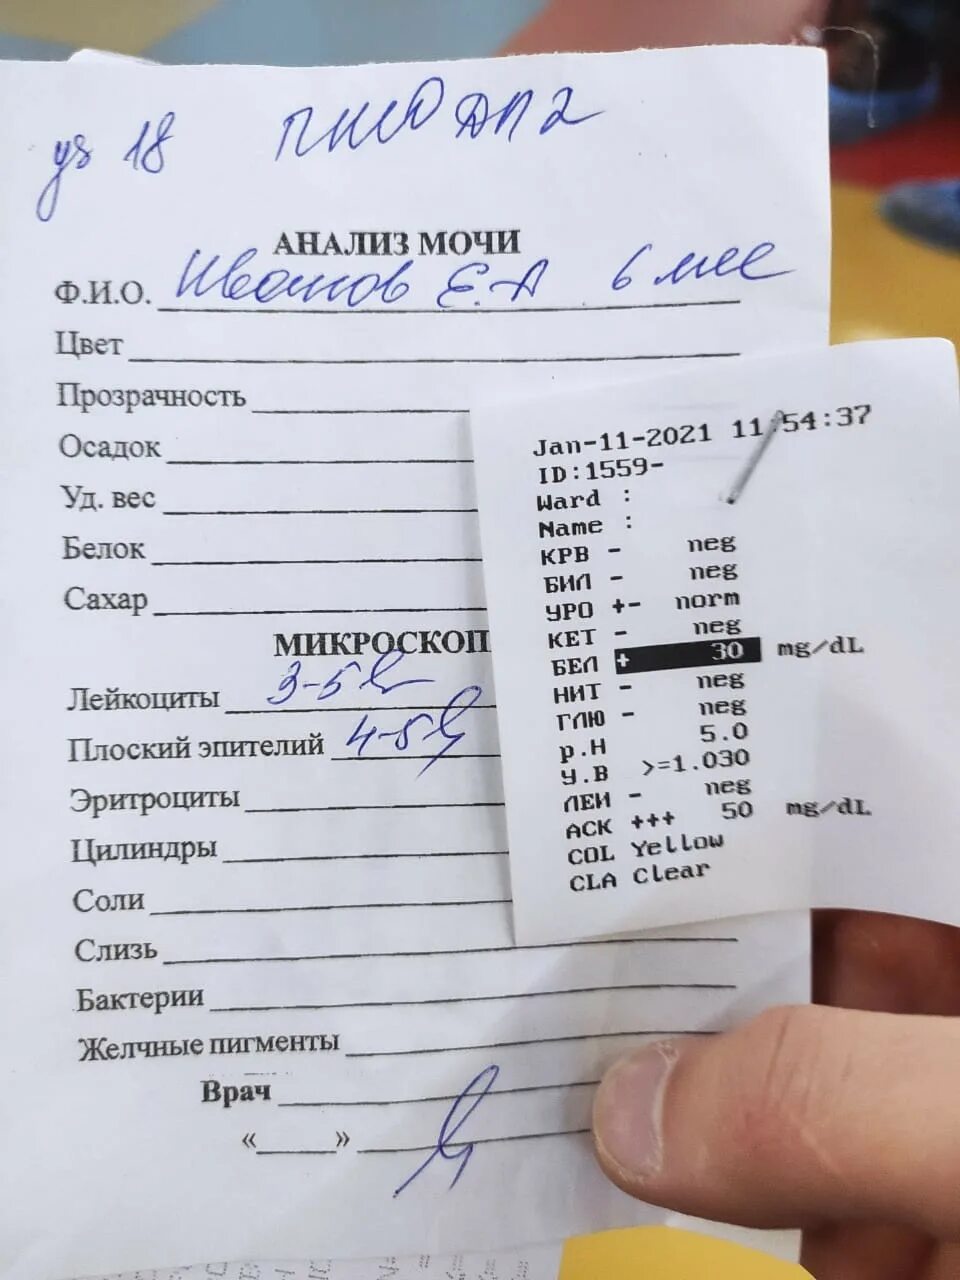 уз 18
АНАЛИЗ МОЧИ
Ф.И.О. Иванов Е.А 6 мес
Цвет
Прозрачность
Осадок
Уд. вес
Белок
Сахар
МИКРОСКОП
Лейкоциты 3-5
Плоский эпителий 4-5
Эритроциты
Цилиндры
Соли
Слизь
Бактерии
Желчные пигменты
Врач
«____»
Jan-11-2021 11:54:37
ID:1559-
Ward :
Name :
КРВ - neg
БИЛ - neg
УРО +- norm
КЕТ - neg
БЕЛ + 30 mg/dL
НИТ - neg
ГЛЮ - neg
р.Н 5.0
У.В >=1.030
ЛЕИ - neg
АСК +++ 50 mg/dL
COL Yellow
CLA Clear